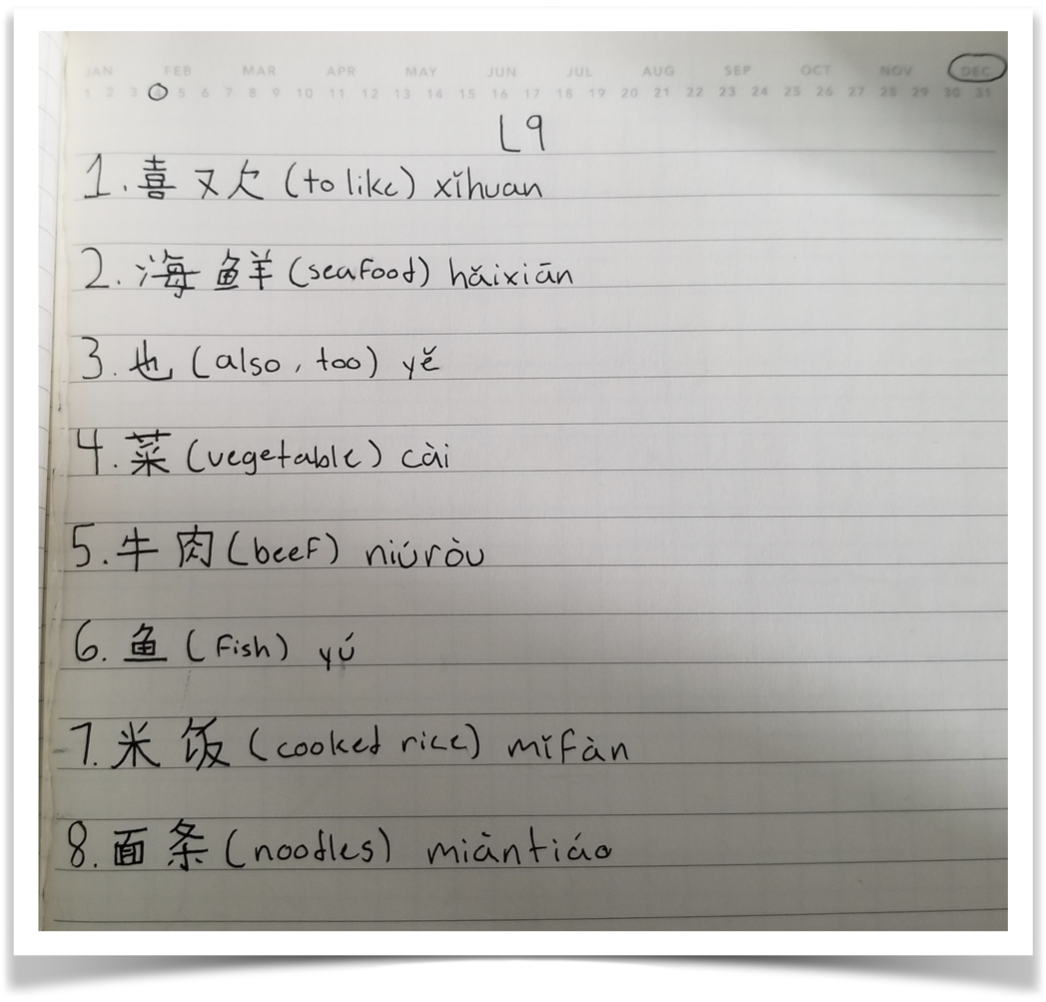 JAN FEB MAR APR MAY JUN JUL AUG SEP OCT NOV DEC
1 2 3 4 5 6 7 8 9 10 11 12 13 14 15 16 17 18 19 20 21 22 23 24 25 26 27 28 29 30 31
L9
1. 喜欢 (to like) xǐhuan
2. 海鲜 (seafood) hǎixiān
3. 也 (also, too) yě
4. 菜 (vegetable) cài
5. 牛肉 (beef) niúròu
6. 鱼 (fish) yú
7. 米饭 (cooked rice) mǐfàn
8. 面条 (noodles) miàntiáo